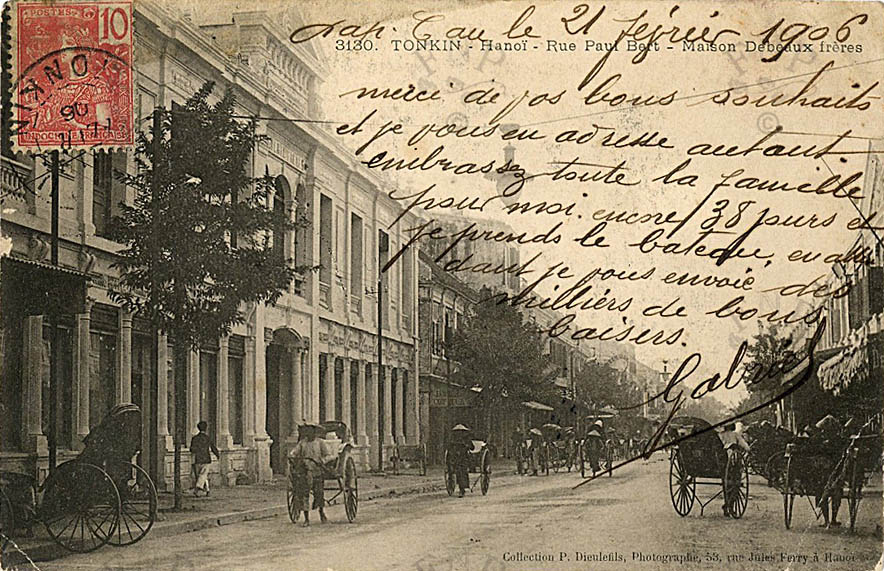 POSTES
10
TONKIN
INDOCHINE FRANÇAISE
Lap. Cau le 21 février 1906
3130. TONKIN - Hanoï - Rue Paul Bert - Maison Debeaux frères
merci de vos bons souhaits
et je vous en adresse autant
embrassez toute la famille
pour moi. encore 38 jours et
je prends le bateau, en atten
dant je vous envoie des
milliers de bons
baisers.
Gabriel
Collection P. Dieulefils, Photographe, 53, rue Jules Ferry à Hanoï